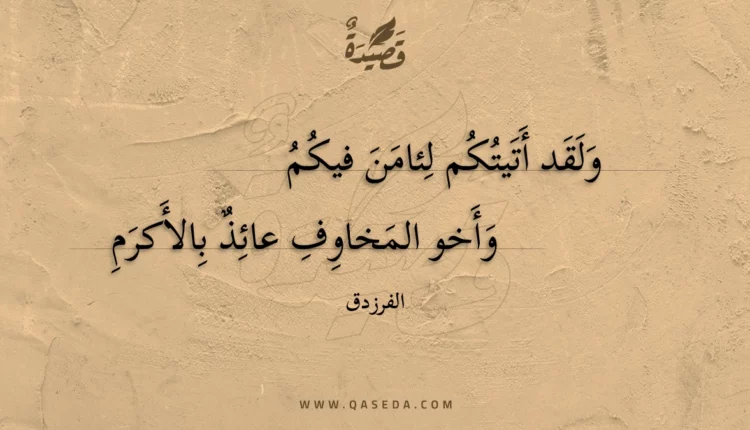 قَصِيدَةٌ
وَلَقَد أَتَيتُكُم لِئامَنَ فيكُمُ
وَأَخو المَخاوِفِ عائِذٌ بِالأَكرَمِ
الفرزدق
WWW.QASEDA.COM